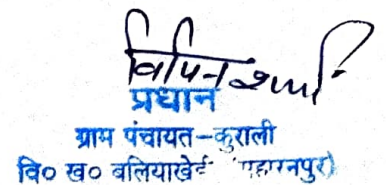 विपिन शर्मा
प्रधान
ग्राम पंचायत-कुराली
वि० ख० बलियाखेड़ी (सहारनपुर)